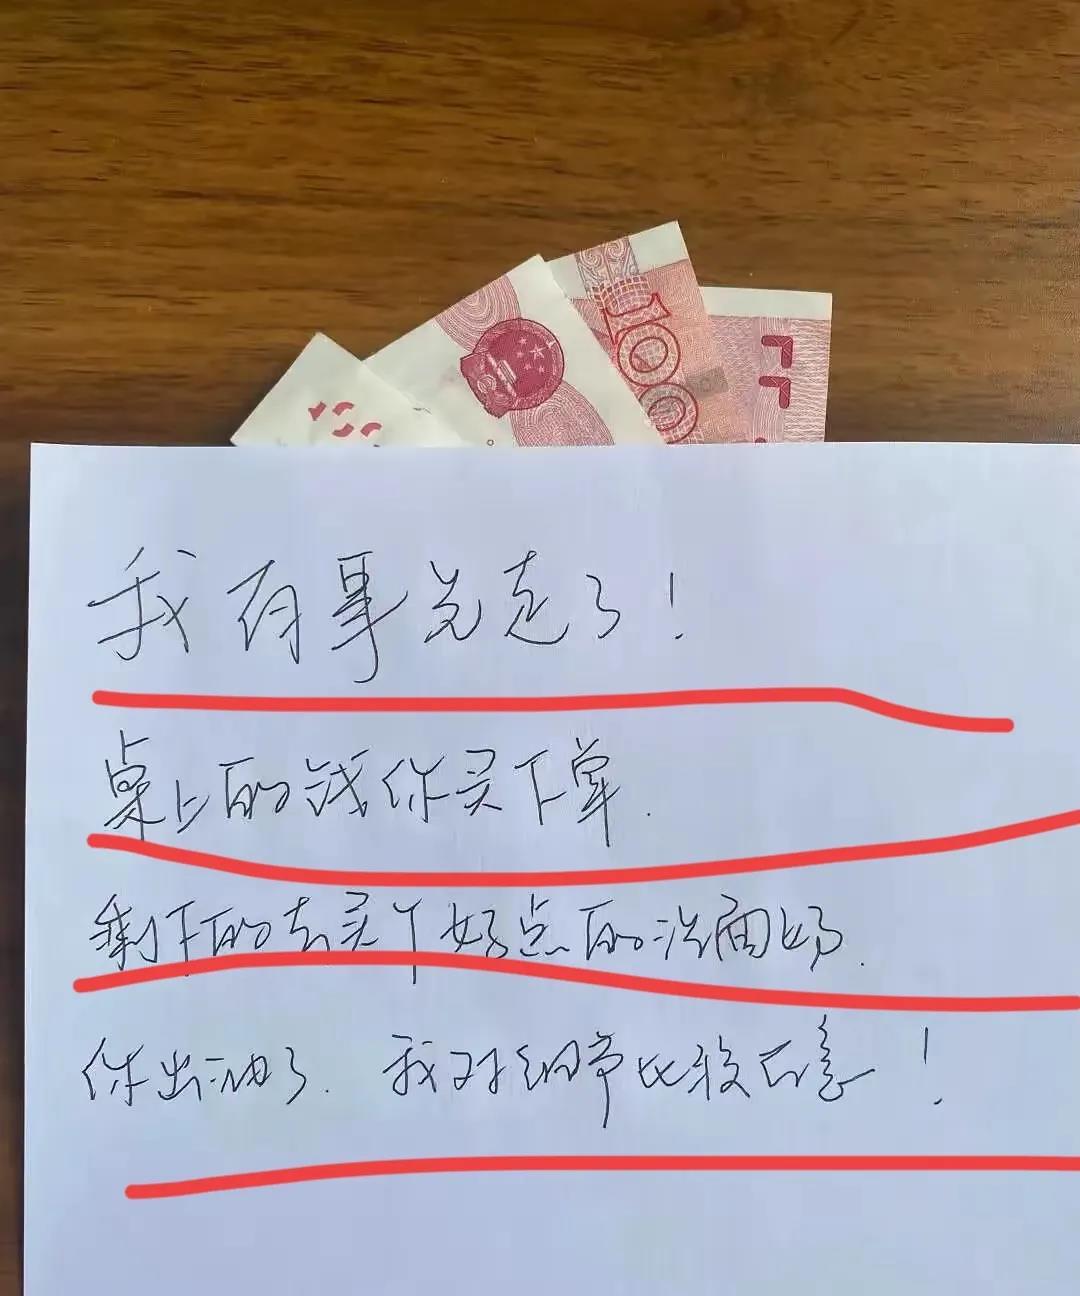 100
我有事先走了！
桌上的钱你买下单.
剩下的去买个好点的洗面奶.
你出油了. 我对细节比较在意！